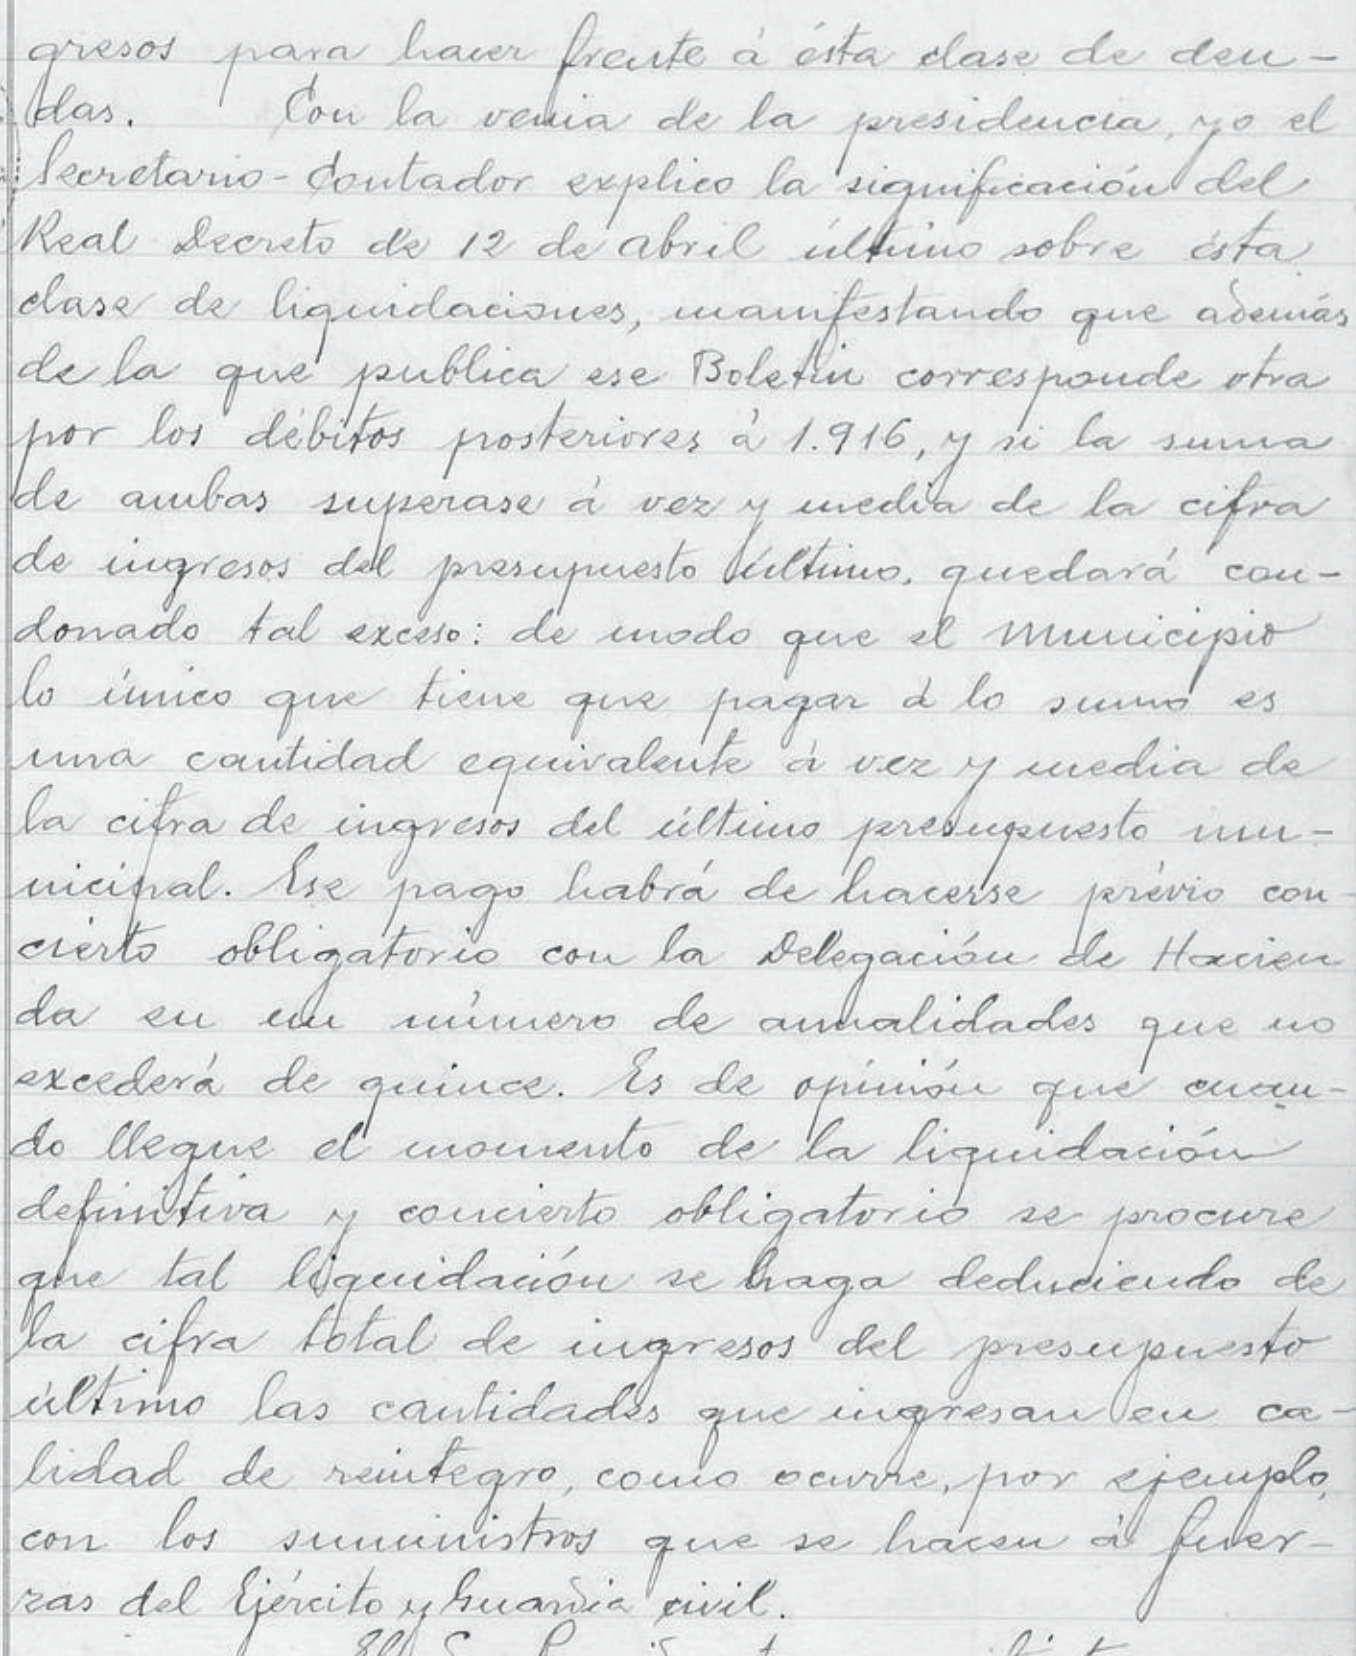 gresos para hacer frente á ésta clase de deu-
das. Con la venia de la presidencia, yo el
Secretario-Contador explico la significación del
Real Decreto de 12 de abril último sobre ésta
clase de liquidaciones, manifestando que además
de la que publica ese Boletin corresponde otra
por los débitos posteriores á 1.916, y si la suma
de ambas superase á vez y media de la cifra
de ingresos del presupuesto último, quedará con-
donado tal exceso: de modo que el Municipio
lo único que tiene que pagar á lo sumo es
una cantidad equivalente á vez y media de
la cifra de ingresos del último presupuesto mu-
nicipal. Ese pago habrá de hacerse prévio con-
cierto obligatorio con la Delegación de Hacien
da en un número de anualidades que no
excederá de quince. Es de opinión que cuan-
do llegue el momento de la liquidación
definitiva y concierto obligatorio se procure
que tal liquidación se haga deduciendo de
la cifra total de ingresos del presupuesto
último las cantidades que ingresan en ca-
lidad de reintegro, como ocurre, por ejemplo,
con los suministros que se hacen á fuer-
zas del Ejército y Guardia civil.